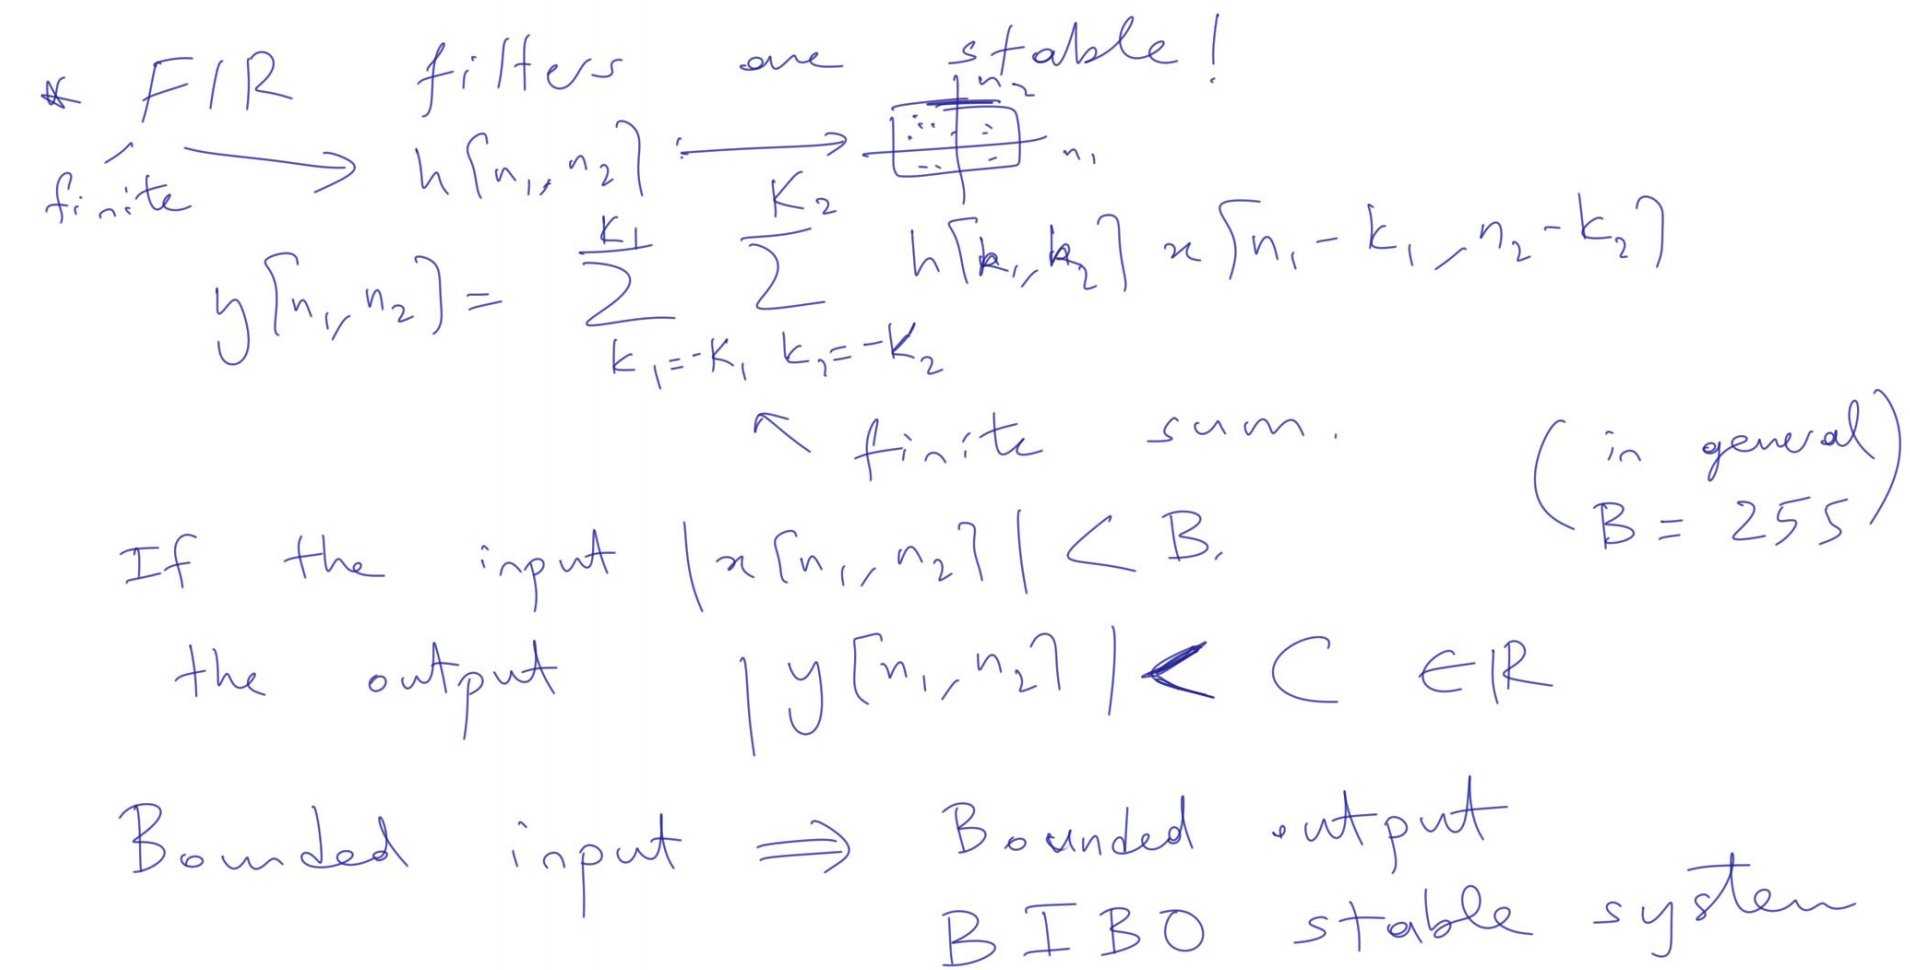 * FIR filters are stable!
finite → h[n₁, n₂] → n₂ n₁
y[n₁, n₂] = ∑_{k₁=-K₁}^{K₁} ∑_{k₂=-K₂}^{K₂} h[k₁, k₂] x[n₁-k₁, n₂-k₂]
↖ finite sum.
(in general B = 255)
If the input |x[n₁, n₂]| < B,
the output |y[n₁, n₂]| < C ∈ ℝ
Bounded input ⟹ Bounded output
BIBO stable system